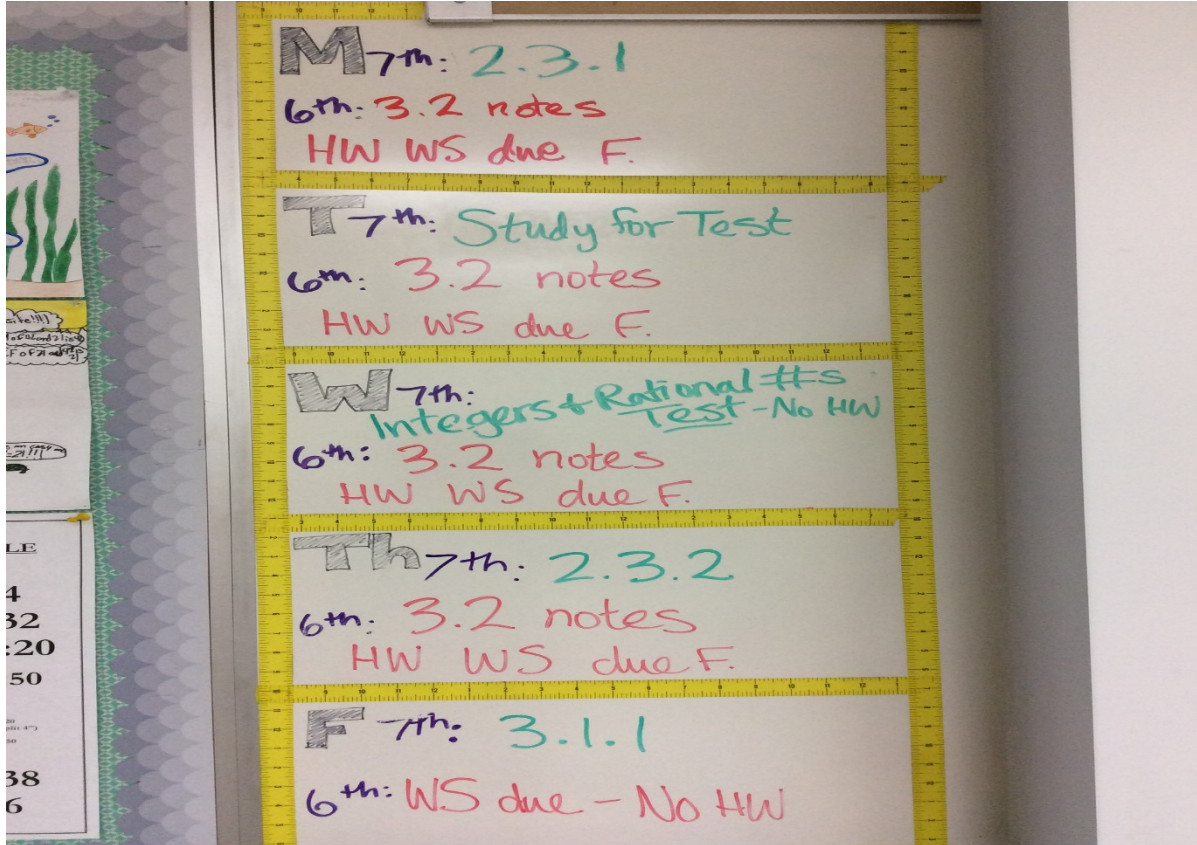 M 7th: 2.3.1
6th: 3.2 notes
HW WS due F.
T 7th: Study for Test
6th: 3.2 notes
HW WS due F.
W 7th: Integers + Rational #s
Test - No HW
6th: 3.2 notes
HW WS due F.
Th 7th: 2.3.2
6th: 3.2 notes
HW WS due F.
F 7th: 3.1.1
6th: WS due - No HW
LE
4
32
:20
50
38
6